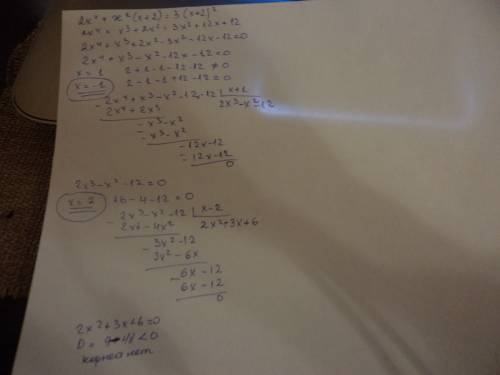 2x⁴ + x²(x+2) = 3(x+2)²
2x⁴ + x³ + 2x² = 3x² + 12x + 12
2x⁴ + x³ + 2x² - 3x² - 12x - 12 = 0
2x⁴ + x³ - x² - 12x - 12 = 0
x = 1 2 + 1 - 1 - 12 - 12 ≠ 0
x = -1 2 - 1 - 1 + 12 - 12 = 0
- 2x⁴ + x³ - x² - 12x - 12 | x+1
2x⁴ + 2x³ 2x³ - x² - 12
- -x³ - x²
-x³ - x²
- -12x - 12
-12x - 12
0
2x³ - x² - 12 = 0
x = 2 16 - 4 - 12 = 0
- 2x³ - x² - 12 | x - 2
2x³ - 4x² 2x² + 3x + 6
- 3x² - 12
3x² - 6x
- 6x - 12
6x - 12
0
2x² + 3x + 6 = 0
D = 9 - 48 < 0
корней нет